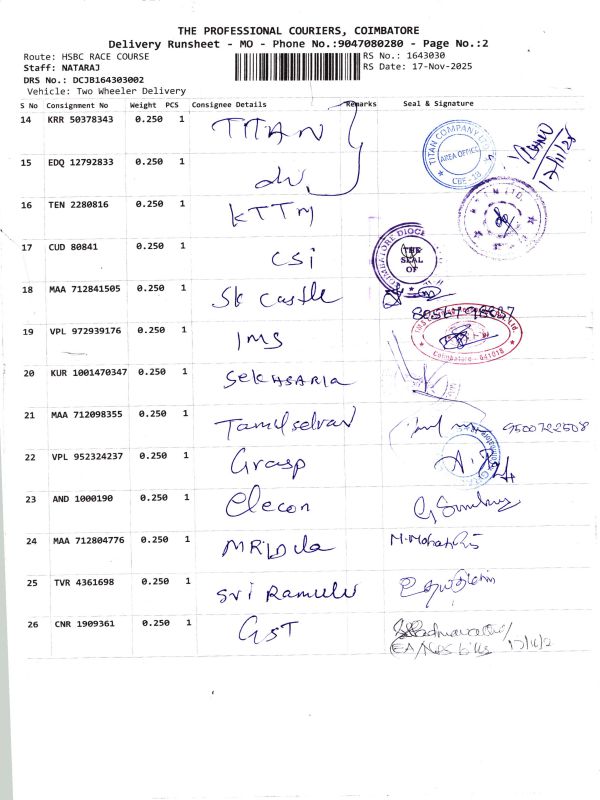 THE PROFESSIONAL COURIERS, COIMBATORE
Delivery Runsheet - MO - Phone No.:9047080280 - Page No.:2
Route: HSBC RACE COURSE
RS No.: 1643030
Staff: NATARAJ
RS Date: 17-Nov-2025
DRS No.: DCJB164303002
Vehicle: Two Wheeler Delivery
S No Consignment No Weight PCS Consignee Details Remarks Seal & Signature
14 KRR 50378343 0.250 1 TITAN
TITAN COMPANY LTD. AREA OFFICE CBE-18
17/11/25
15 EDQ 12792833 0.250 1 do
16 TEN 2280816 0.250 1 KTTM
17 CUD 80841 0.250 1 CSI
COIMBATORE DIOCE THE SEAL OF
18 MAA 712841505 0.250 1 SK Castle
19 VPL 972939176 0.250 1 IMS
Coimbatore - 641018
20 KUR 1001470347 0.250 1 SEKHSARIA
21 MAA 712098355 0.250 1 Tamilselvan
9500722508
22 VPL 952324237 0.250 1 Grasp
23 AND 1000190 0.250 1 Elecon
24 MAA 712804776 0.250 1 MRIDula
25 TVR 4361698 0.250 1 Sri Ramulu
26 CNR 1909361 0.250 1 GST